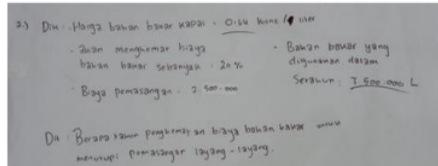 2.) Dik : Harga bahan bakar kapal = 0,54 /1 liter
- akan menghemat biaya
bahan bakar sebanyak : 20 %
- Biaya pemasangan : 2.500.000
- Bahan bakar yang
digunakan dalam
Setahun : 3.500.000 L
Dit : Berapa tahun penghematan biaya bahan bakar untuk
menutupi pemasangan layang-layang.